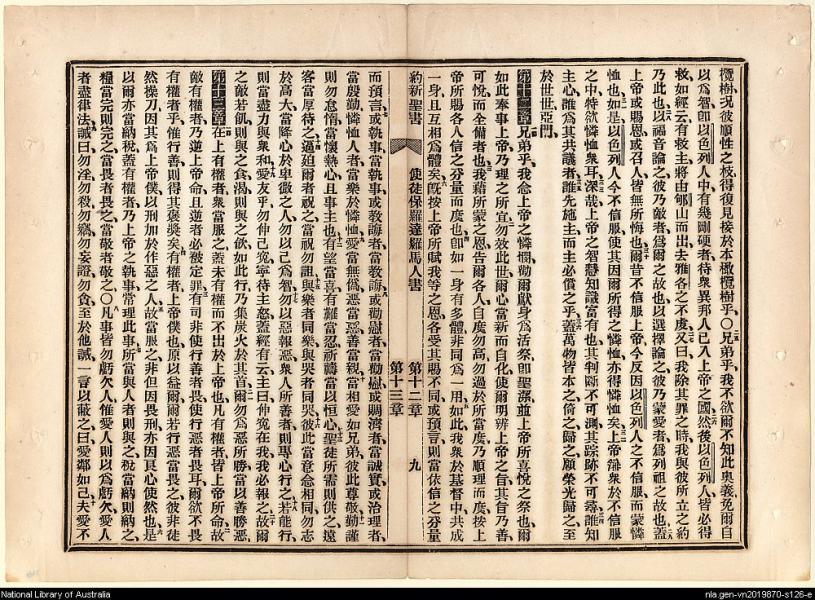 欖樹、況彼順性之枝、得復見接於本橄欖樹乎、〇兄弟乎、我不欲爾不知此奧義、免爾自
以爲智、卽以色列人中有幾剛硬者、待衆異邦人已入上帝之國、然後以色列人皆必得
救、如經云、有救主將由郇山而出、去雅各之不虔、又曰、我除其罪之時、我與彼所立之約
乃此也、以福音論之、彼乃敵者、爲爾之故也、以選擇論之、彼乃蒙愛者、爲列祖之故也、蓋
上帝或賜恩、或召人、皆無所悔也、爾昔不信服上帝、今反因以色列人之不信服而蒙憐
恤也、如是、以色列人今不信服、使其因爾所得之憐恤、亦得憐恤矣、上帝錮衆於不信服
之中、特欲憐恤衆耳、深哉、上帝之智慧知識富有也、其判斷不可測、其踪跡不可尋、誰知
主心、誰爲其共議者、誰先施主、而主必償之乎、蓋萬物皆本之、倚之、歸之、願榮光歸之、至
於世世亞門、
第十二章 兄弟乎、我念上帝之憐憫、勸爾獻身爲活祭、卽聖潔、上帝所喜悅之祭也、爾
如此奉事上帝、乃理之所宜、勿效此世、爾心當新而自化、使爾明辨上帝之旨、其旨乃善、
可悅、而全備者也、我藉所蒙之恩、告爾各人、自度勿高、勿過於所當度、乃順理而度、按上
帝所賜各人信之分量而度也、卽如一身有多體、非同爲一用、如此我衆於基督中共成
一身、且互相爲體矣、旣按上帝所賦我等之恩、各受其賜不同、或預言、則當依信之分量
約新聖書 使徒保羅達羅馬人書 第十二章 第十三章 九
而預言、或執事、當執事、或教誨者、當教誨、或勸慰者、當勸慰、或賙濟者、當誠實、或治理者、
當殷勤、憐恤人者、當樂於憐恤、愛當無僞、惡當惡、善當親、當相愛如兄弟、彼此尊敬、勤謹
則勿怠惰、當懷熱心、且事主也、有望當喜、有難當忍、祈禱當以恒心、聖徒所需則供之、遠
客當厚待之、逼迫爾者祝之、當祝勿詛、與樂者同樂、與哭者同哭、彼此當意念相同、勿志
於高大、當降心於卑微之人、勿以己爲智、勿以惡報惡、衆人所善者、則專心行之、若能行、
則當盡力與衆和、愛友乎、勿伸己寃、寧待主怒、蓋經有云、主曰、伸寃在我、我必報之、故爾
之敵若飢、則與之食、渴則與之飲、如此行、乃集炭火於其首、爾勿爲惡所勝、當以善勝惡、
第十三章 在上有權者、衆當服之、蓋未有權而不出於上帝也、凡有權者、皆上帝所命、故
敵有權者、乃逆上帝命、且逆者必被定罪、有司非使行善者畏、使行惡者畏耳、爾欲不畏
有權者乎、惟行善、則得其褒獎矣、有權者、上帝僕也、原以益爾、爾若行惡、當畏之、彼非徒
然操刀、因其爲上帝僕、以刑加於作惡之人、故當服之、非但因畏刑、亦因良心使然也、是
以爾亦當納稅、蓋有權者乃上帝之執事、常理此事、所當與人者則與之、稅當納則納之、
糧當完則完之、當畏者畏之、當敬者敬之、〇凡事皆勿虧欠人、惟愛人則以爲虧欠、愛人
者盡律法、誡曰、勿淫、勿殺、勿竊、勿妄證、勿貪、至於他誡、一言以蔽之、曰、愛鄰如己、夫愛不
National Library of Australia
nla.gen-vn2019870-s126-e